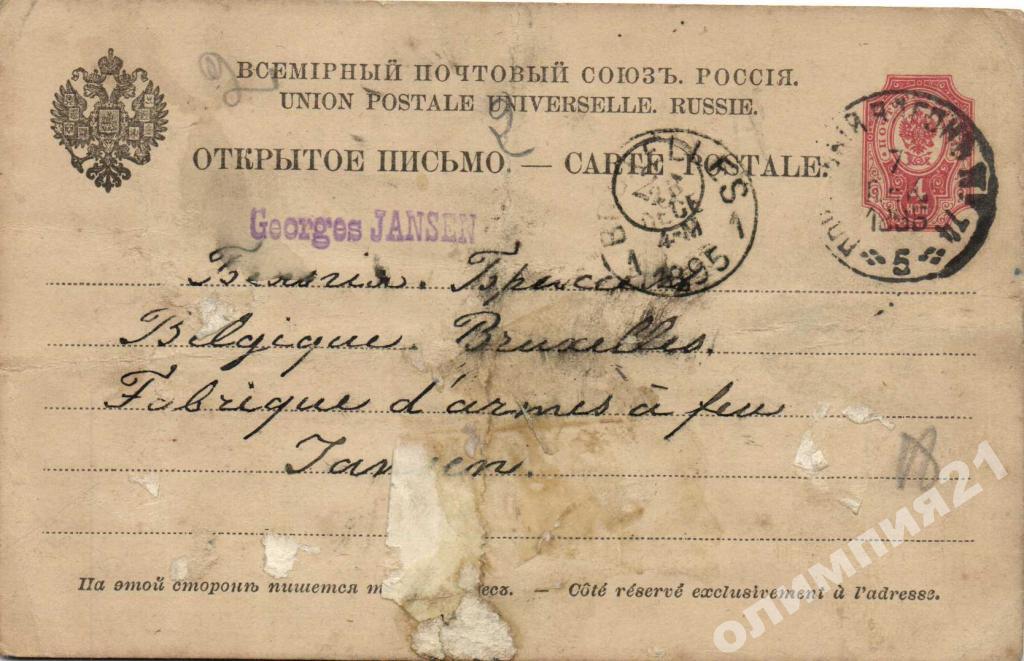 ВСЕМІРНЫЙ ПОЧТОВЫЙ СОЮЗЪ. РОССІЯ.
UNION POSTALE UNIVERSELLE. RUSSIE.
ОТКРЫТОЕ ПИСЬМО. — CARTE POSTALE.
4
КОП
№ 74
5
1
4-M
1 1895 1
Georges JANSEN
Бельгия. Брюссель
Belgique. Bruxelles.
Fabrique d'armes à feu
Jansen.
На этой сторонѣ пишется — Côté réservé exclusivement à l'adresse.
олимпия21